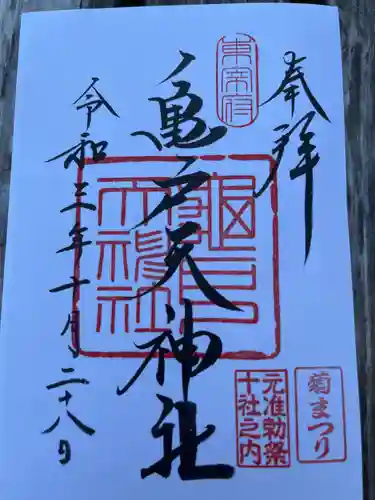 奉拝
東宰府
亀戸天神社
令和三年十月二十八日
元准勅祭
十社之内
菊まつり